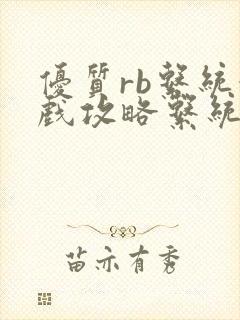 優質rb繫統
戲攻略繫統
苗亦有秀